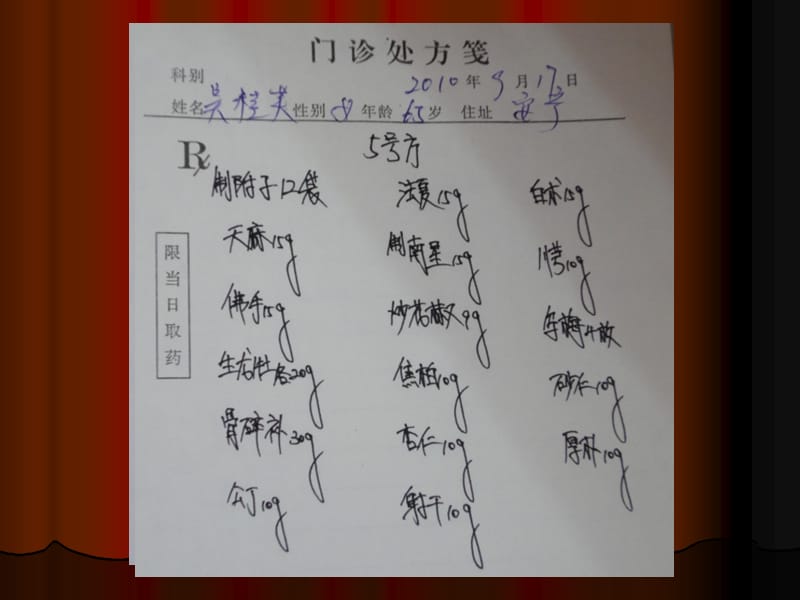 门诊处方笺
科别 2010年9月17日
姓名 吴桂英 性别 ♀ 年龄 65岁 住址 安宁
R 5号方
制附子12袋 法夏15g 白术15g
天麻15g 制南星15g 川芎10g
佛手15g 炒花椒9g 乌梅
生龙牡各20g 焦柏10g 砂仁10g
骨碎补30g 杏仁10g 厚朴10g
勾丁10g 射干10g
限当日取药